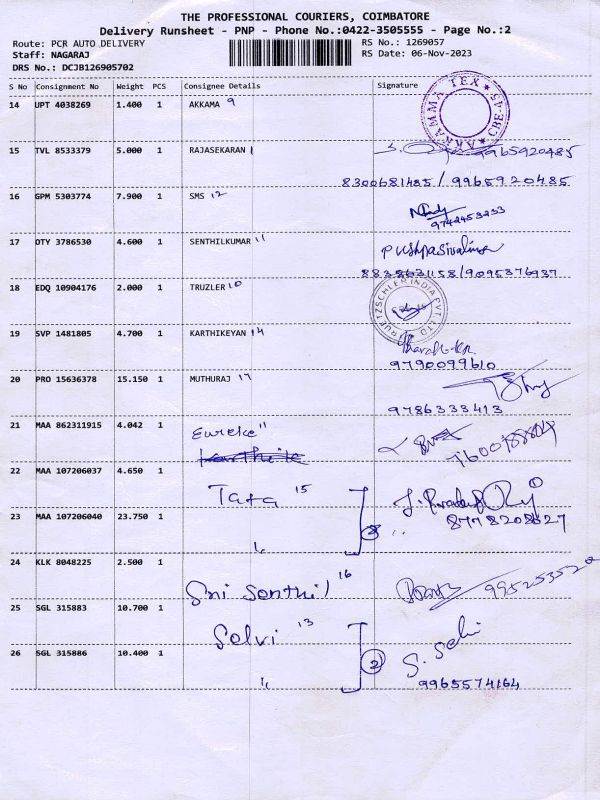 THE PROFESSIONAL COURIERS, COIMBATORE
Delivery Runsheet - PNP - Phone No.:0422-3505555 - Page No.:2
Route: PCR AUTO DELIVERY RS No.: 1269057
Staff: NAGARAJ RS Date: 06-Nov-2023
DRS No.: DCJB126905702
S No Consignment No Weight PCS Consignee Details Signature
14 UPT 4038269 1.400 1 AKKAMA 9
AKKAMMA TEX
15 TVL 8533379 5.000 1 RAJASEKARAN 1 9965920485
8300681485 / 9965920485
16 GPM 5303774 7.900 1 SMS 12
9742453233
17 OTY 3786530 4.600 1 SENTHILKUMAR 11
8838631158/9095376937
18 EDQ 10904176 2.000 1 TRUZLER 10
TRUETZSCHLER INDIA PVT. LTD
19 SVP 1481805 4.700 1 KARTHIKEYAN 14
9790099610
20 PRO 15636378 15.150 1 MUTHURAJ 17
9786333413
21 MAA 862311915 4.042 1 Eureke 11
22 MAA 107206037 4.650 1 Tata 15
23 MAA 107206040 23.750 1 " 8778208627
24 KLK 8048225 2.500 1 Sri Senthil 16
25 SGL 315883 10.700 1 Selvi 13
26 SGL 315886 10.400 1 " 2 S. Selvi
9965574164